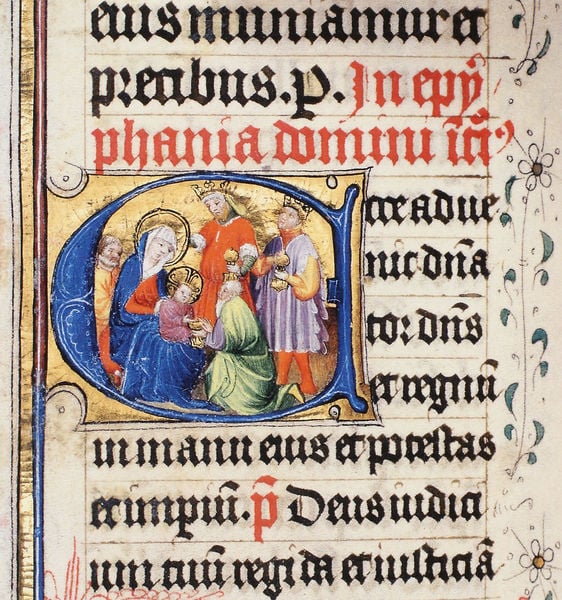 eius muniamur et
precibus. P. In epy
phania domini
Ecce adue
nit dn̄a
tor dn̄s
et regnū
in manu eius et potestas
et impiū. p̄ Deus iudici
um tuū regi da et iusticiā